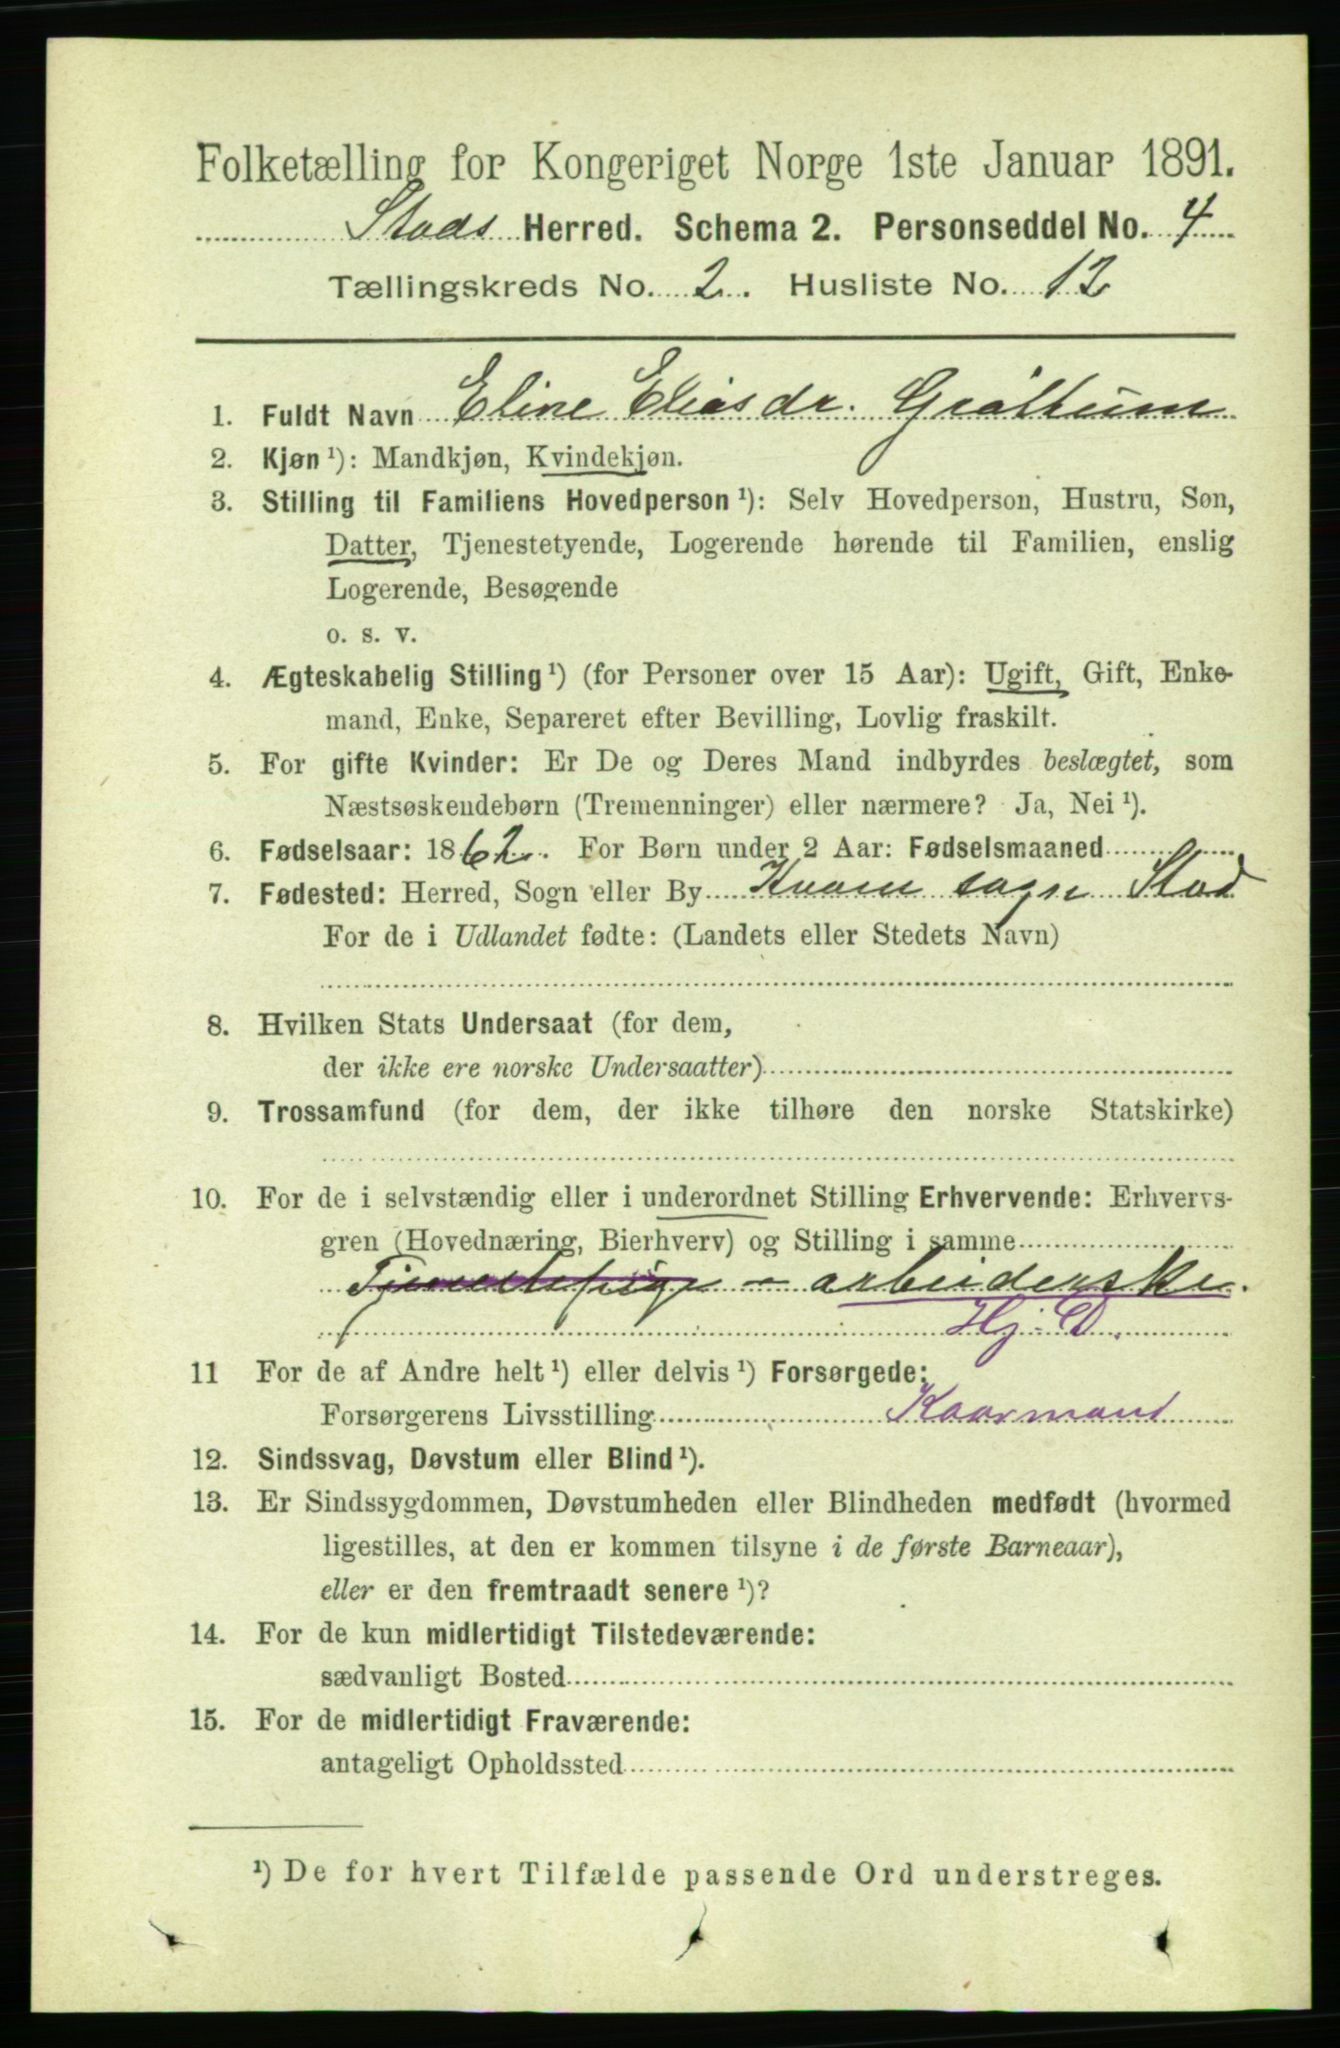 Folketælling for Kongeriget Norge 1ste Januar 1891.
Stods Herred. Schema 2. Personseddel No. 4
Tællingskreds No. 2. Husliste No. 12
1. Fuldt Navn Eline Eliasdr. Gråltum
2. Kjøn ¹): Mandkjøn, Kvindekjøn.
3. Stilling til Familiens Hovedperson ¹): Selv Hovedperson, Hustru, Søn,
Datter, Tjenestetyende, Logerende hørende til Familien, enslig
Logerende, Besøgende
o. s. v.
4. Ægteskabelig Stilling ¹) (for Personer over 15 Aar): Ugift, Gift, Enke-
mand, Enke, Separeret efter Bevilling, Lovlig fraskilt.
5. For gifte Kvinder: Er De og Deres Mand indbyrdes beslægtet, som
Næstsøskendebørn (Tremenninger) eller nærmere? Ja, Nei ¹).
6. Fødselsaar: 1862. For Børn under 2 Aar: Fødselsmaaned
7. Fødested: Herred, Sogn eller By Kvam sogn Stod
For de i Udlandet fødte: (Landets eller Stedets Navn)
8. Hvilken Stats Undersaat (for dem,
der ikke ere norske Undersaatter)
9. Trossamfund (for dem, der ikke tilhøre den norske Statskirke)
10. For de i selvstændig eller i underordnet Stilling Erhvervende: Erhvervs-
gren (Hovednæring, Bierhverv) og Stilling i samme
Tjenestepige - arbeiderske.
Hj. D.
11 For de af Andre helt ¹) eller delvis ¹) Forsørgede:
Forsørgerens Livsstilling Kaarmand
12. Sindssvag, Døvstum eller Blind ¹).
13. Er Sindssygdommen, Døvstumheden eller Blindheden medfødt (hvormed
ligestilles, at den er kommen tilsyne i de første Barneaar),
eller er den fremtraadt senere ¹)?
14. For de kun midlertidigt Tilstedeværende:
sædvanligt Bosted
15. For de midlertidigt Fraværende:
antageligt Opholdssted
¹) De for hvert Tilfælde passende Ord understreges.